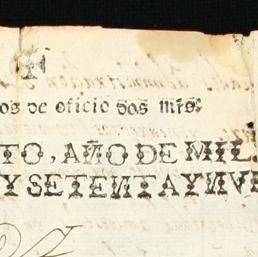 os de oficio dos mrs.
TO, AÑO DE MIL
Y SETENTA Y NVE